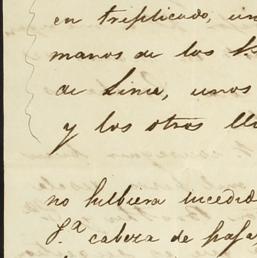 en triplicado, un
manos de los
de Lima, unos
y los otros
no hubiera sucedid
cabeza de